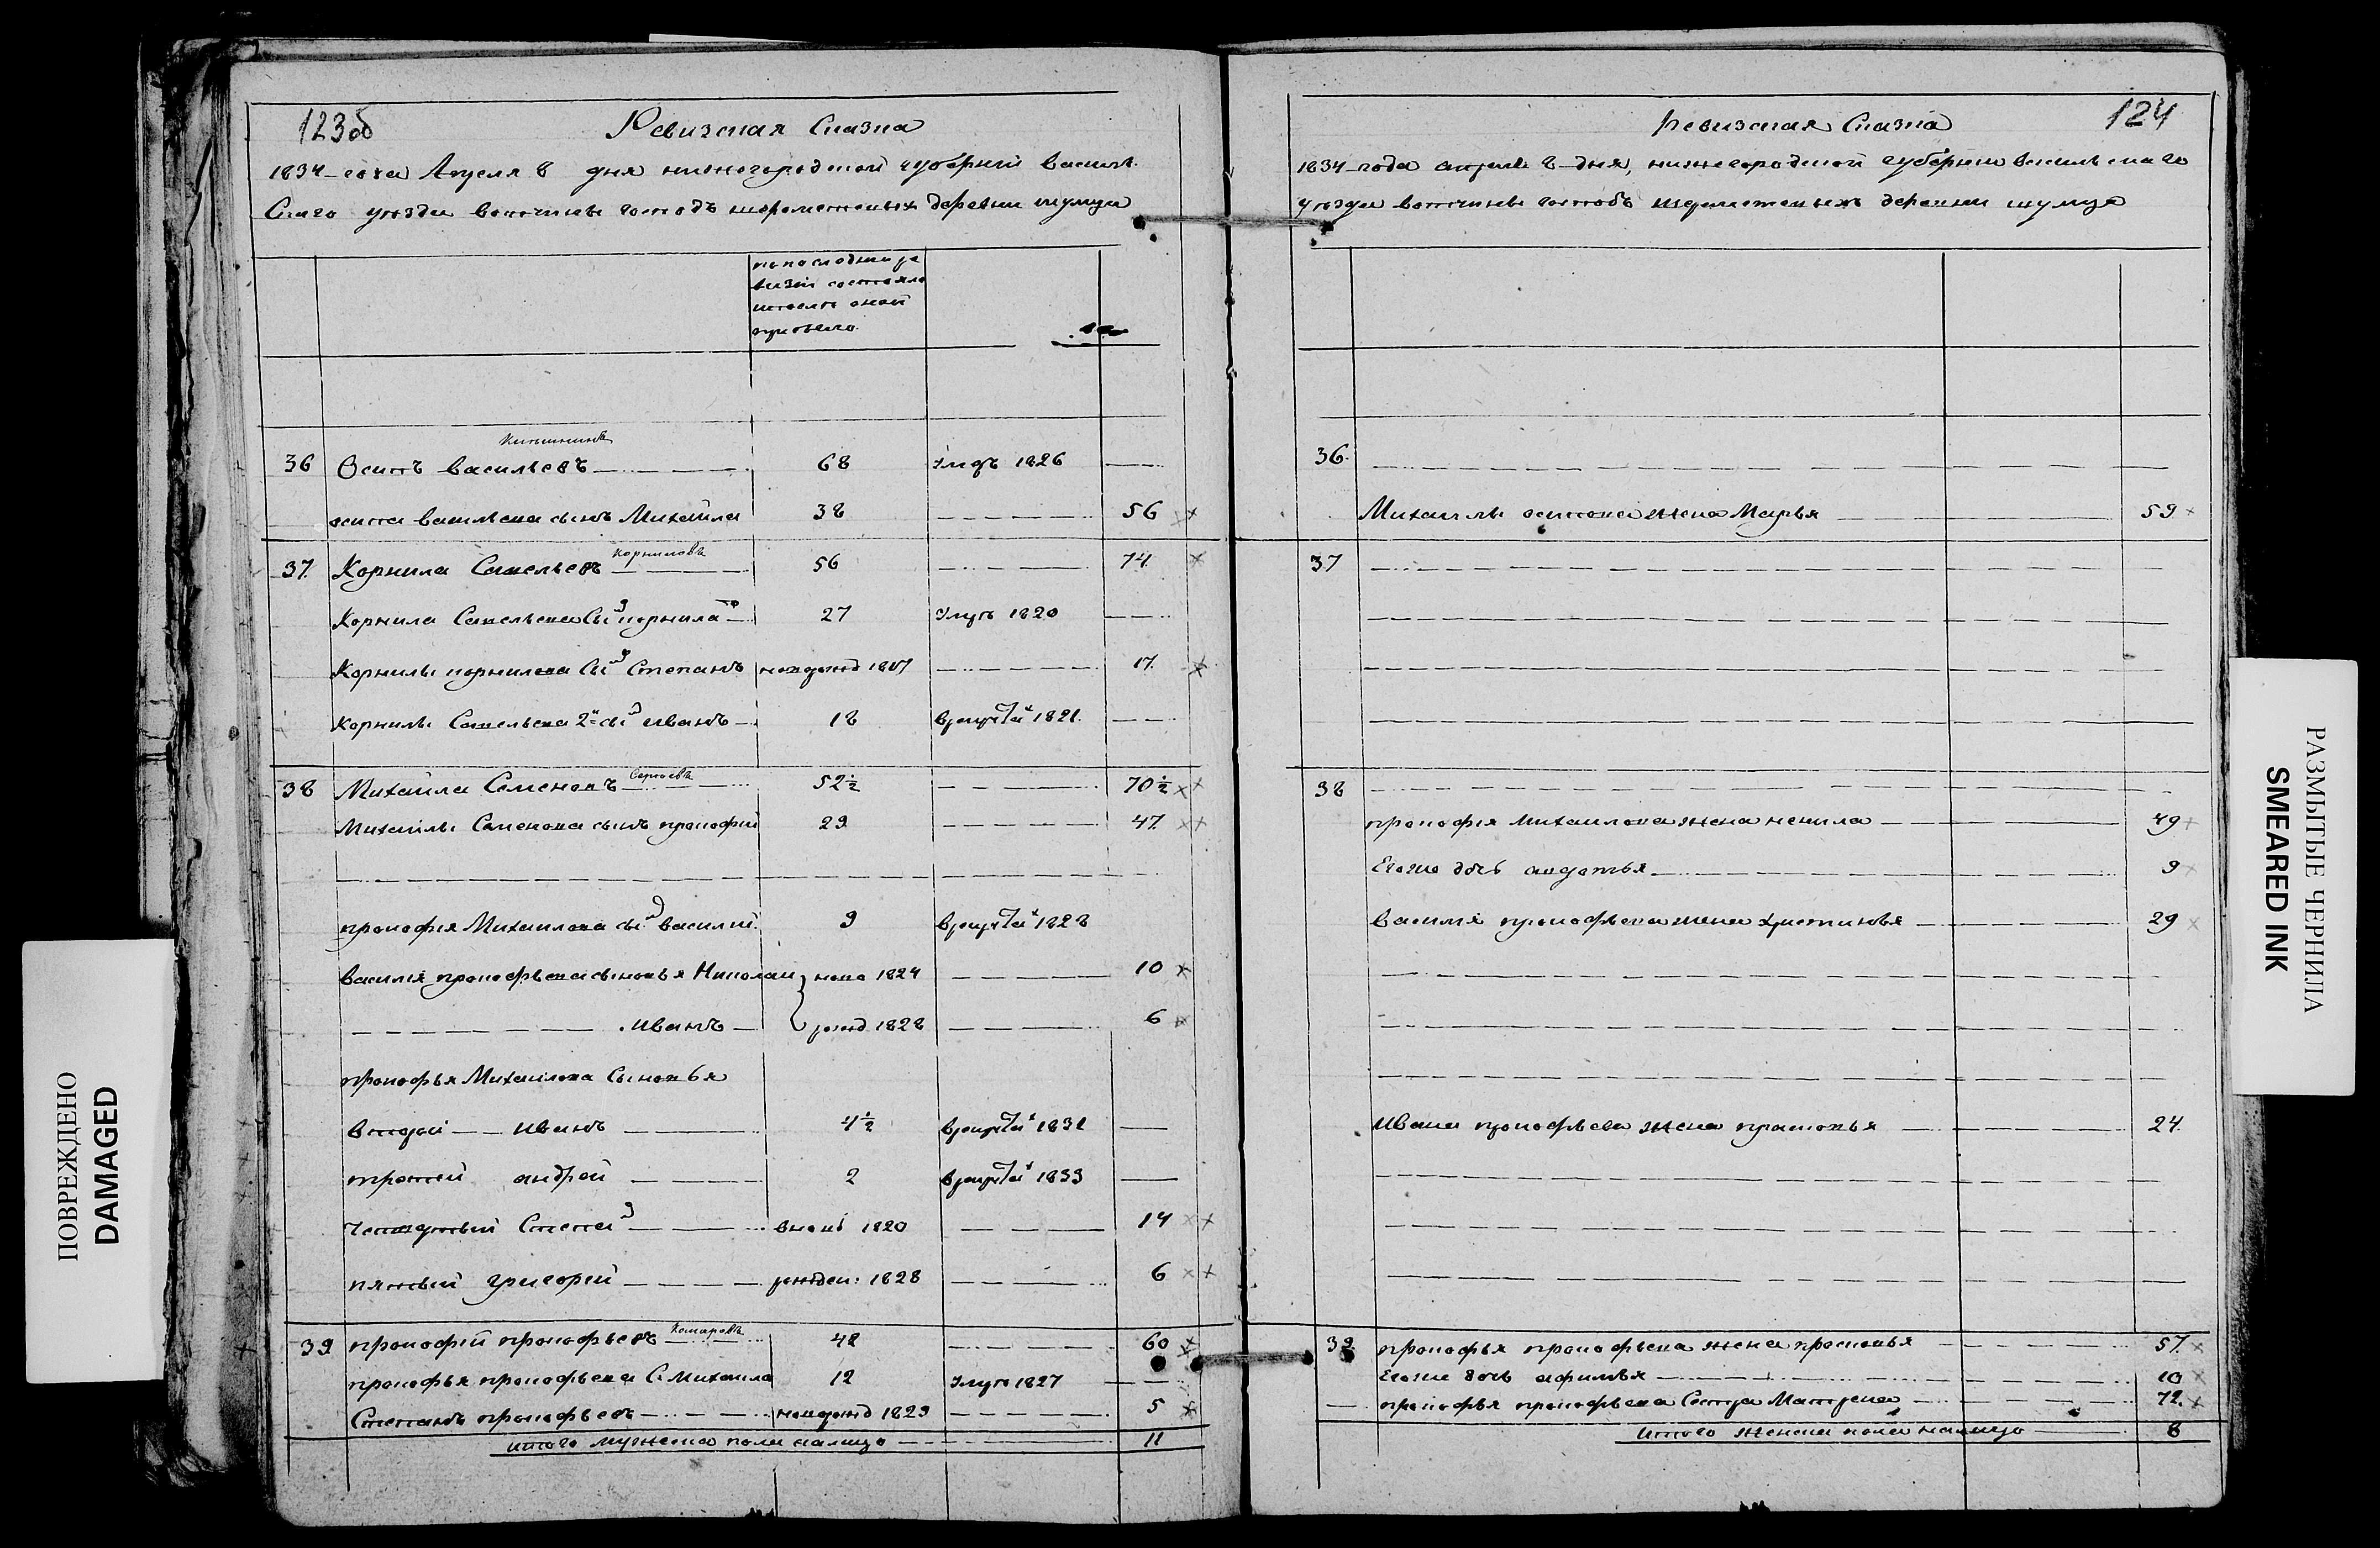 123об
Ревизская Сказка
1834 года Апреля 8 дня нижегородской губернии василь
Скаго уезда вотчины господъ шереметевыхъ деревни шумца
по последней ре
визии состояло
и после оной
прибыло
Китинкинъ
36 Осипъ васильевъ 68 умеръ 1826
осипа васильева сынъ Михайла 38 56
Корниловъ
37 Корнила Савельевъ 56 74
Корнила Савельева Сынъ корнила 27 умеръ 1820
Корнилы корнилова Сынъ Степанъ новорожд 1817 17
Корнилы Савельева 2й сынъ иванъ 18 врекруты 1821
Сергеевъ
38 Михайла Семеновъ 52½ 70½
Михайлы Семенова сынъ прокофий 29 47
прокофия Михаилова сынъ василий 9 врекруты 1828
василия прокофьева сыновья Николаи ново 1824 10
иванъ рожд 1828 6
прокофья Михаилова Сыновья
второй иванъ 4½ врекруты 1831
третий андрей 2 врекруты 1833
четвертый Степанъ вновь 1820 14
пятый григорей рожден: 1828 6
Комаровъ
39 прокофий прокофьевъ 42 60
прокофья прокофьева С Михаила 12 умеръ 1827
Степанъ прокофьевъ новорожд 1829 5
итого мужеска пола налицо 11
124
Ревизская Сказка
1834 года апреля 8 дня, нижегородской губернии васильскаго
уезда вотчины господъ шереметевыхъ деревни шумца
36
Михаилы осипова жена Марья 59
37
38
прокофия михаилова жена ненила 49
Егоже дочь авдотья 9
василия прокофьева жена христинья 29
ивана прокофьева жена прасковья 24
39 прокофья прокофьева жена прасковья 57
Егоже дочь афимья 10
прокофья прокофьева Сестра Матрена 72
итого женска пола налицо 8
ПОВРЕЖДЕНО
DAMAGED
РАЗМЫТЫЕ ЧЕРНИЛА
SMEARED INK